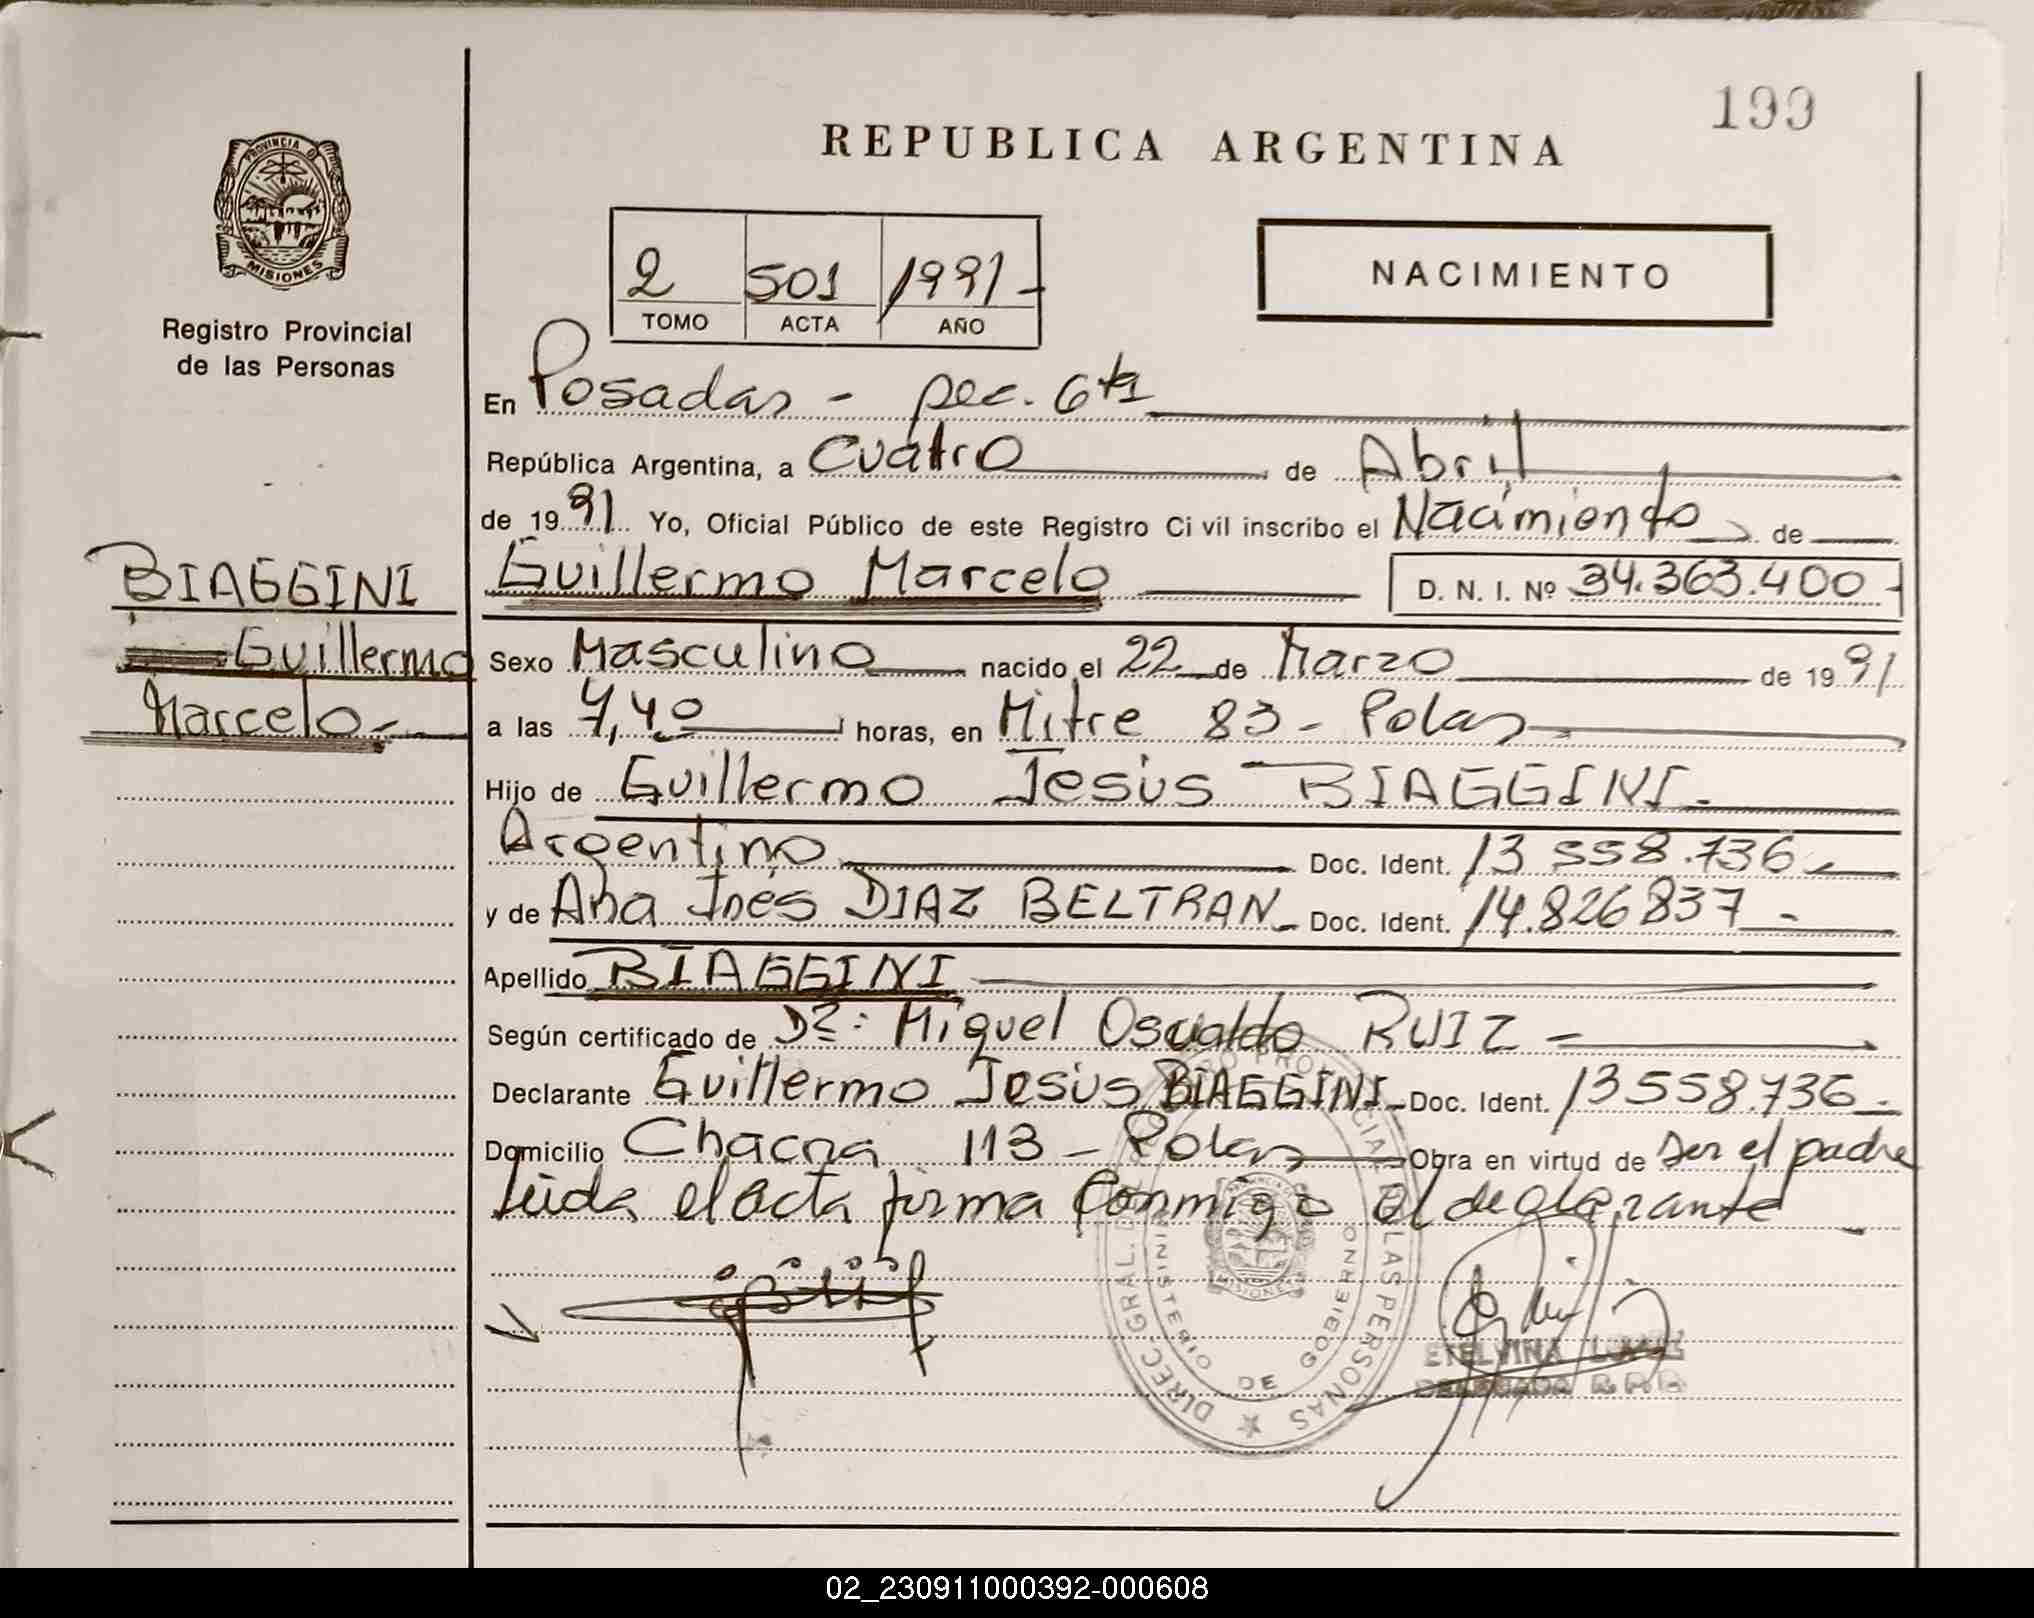 199
REPUBLICA ARGENTINA
PROVINCIA D
MISIONES
Registro Provincial
de las Personas
2 501 1991-
TOMO ACTA AÑO
NACIMIENTO
En Posadas - sec. 6ta
República Argentina, a Cuatro de Abril
de 1991 Yo, Oficial Público de este Registro Civil inscribo el Nacimiento de
BIAGGINI
Guillermo
Marcelo-
Guillermo Marcelo D. N. I. Nº 34.363.400-
Sexo Masculino nacido el 22 de Marzo de 1991
a las 7,40 horas, en Mitre 83 - Pdas
Hijo de Guillermo Jesús BIAGGINI-
Argentino Doc. Ident. 13 558.736-
y de Ana Inés DIAZ BELTRAN- Doc. Ident. 14.826837-
Apellido BIAGGINI
Según certificado de Dº: Miguel Osvaldo RUIZ-
Declarante Guillermo Jesús BIAGGINI- Doc. Ident. 13558.736-
Domicilio Chacra 113 - Pdas Obra en virtud de ser el padre
Leída el acta firma conmigo el declarante -
DIREC. GRAL. DEL REGISTRO PROVINCIAL DE LAS PERSONAS
MINISTERIO DE GOBIERNO
MISIONES
ETELVINA
DELEGADA R.P.P.
02_230911000392-000608